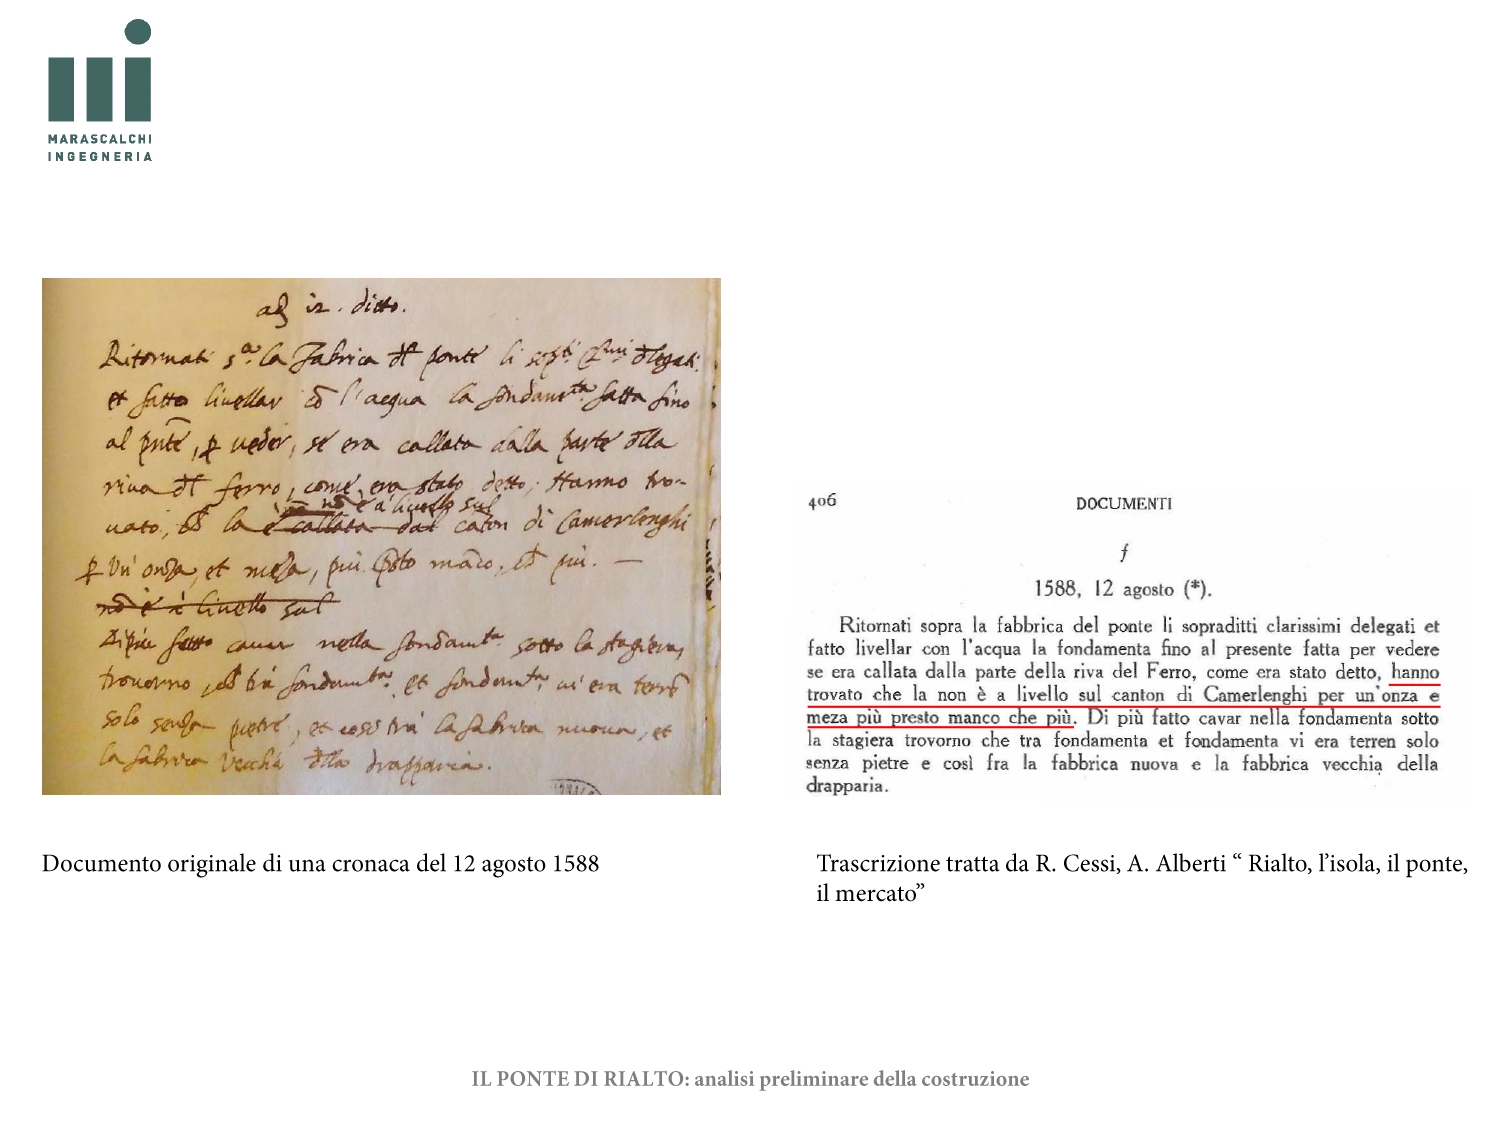 MARASCALCHI
INGEGNERIA
adj 12. ditto.
Ritornati s.ª la Fabrica dl ponte li sop.ti Cl.mi dlegati
et fatto livellar cō l'acqua la fondam.ta fatta fino
al pnte, p veder, se era callata dalla parte dlla
riva dl ferro, come era stato detto, Hanno tro-
nō è a livello sul
vato, ch la è callata dal caton di Camerlenghi
p Un' onza, et meza, più psto māco, ch più. —
nō è à livello sul
Di più fatto cavar nella fondam.ta sotto la stagiera,
trovorno, ch trà fondam.ta et fondam.ta vi era terrē
solo senza pietre, et così trà la fabrica nuova, et
la fabrica vecchia dlla drapparia.
406 DOCUMENTI
f
1588, 12 agosto (*).
Ritornati sopra la fabbrica del ponte li sopraditti clarissimi delegati et
fatto livellar con l'acqua la fondamenta fino al presente fatta per vedere
se era callata dalla parte della riva del Ferro, come era stato detto, hanno
trovato che la non è a livello sul canton di Camerlenghi per un'onza e
meza più presto manco che più. Di più fatto cavar nella fondamenta sotto
la stagiera trovorno che tra fondamenta et fondamenta vi era terren solo
senza pietre e così fra la fabbrica nuova e la fabbrica vecchia della
drapparia.
Documento originale di una cronaca del 12 agosto 1588
Trascrizione tratta da R. Cessi, A. Alberti “ Rialto, l’isola, il ponte,
il mercato”
IL PONTE DI RIALTO: analisi preliminare della costruzione